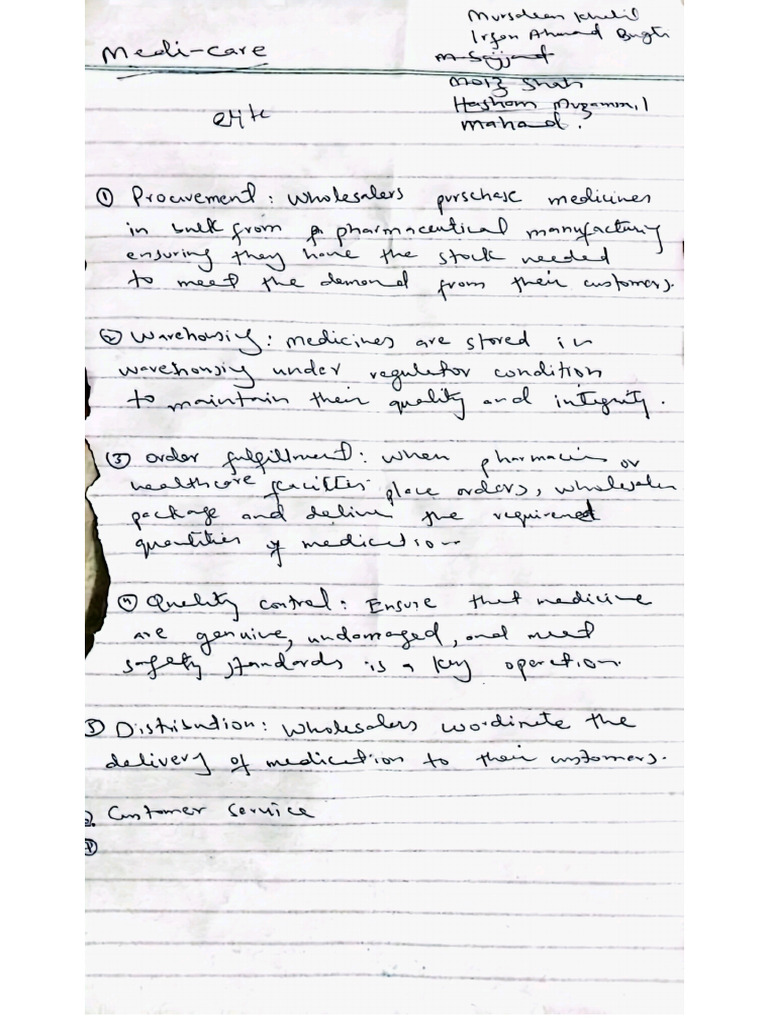 Medi-care
Mursaleen Khalil
Irfan Ahmad Bugti
M-Sajjad
Moiz Shah
Hashom Muzammil
Mahad.
① Procurement: Wholesalers purschase medicines
in bulk from pharmaceutical manufacturing
ensuring they have the stock needed
to meet the demand from their customers.
② Warehousing: Medicines are stored in
warehousing under regulator condition
to maintain their quality and integrity.
③ Order fulfillment: When pharmacies or
healthcare facilities place orders, wholesalers
package and deliver the required
quantities of medication
④ Quality control: Ensure that medicine
are genuine, undamaged, and meet
safety standards is a key operation.
5) Distribution: Wholesalers coordinate the
delivery of medication to their customers.
Customer Service